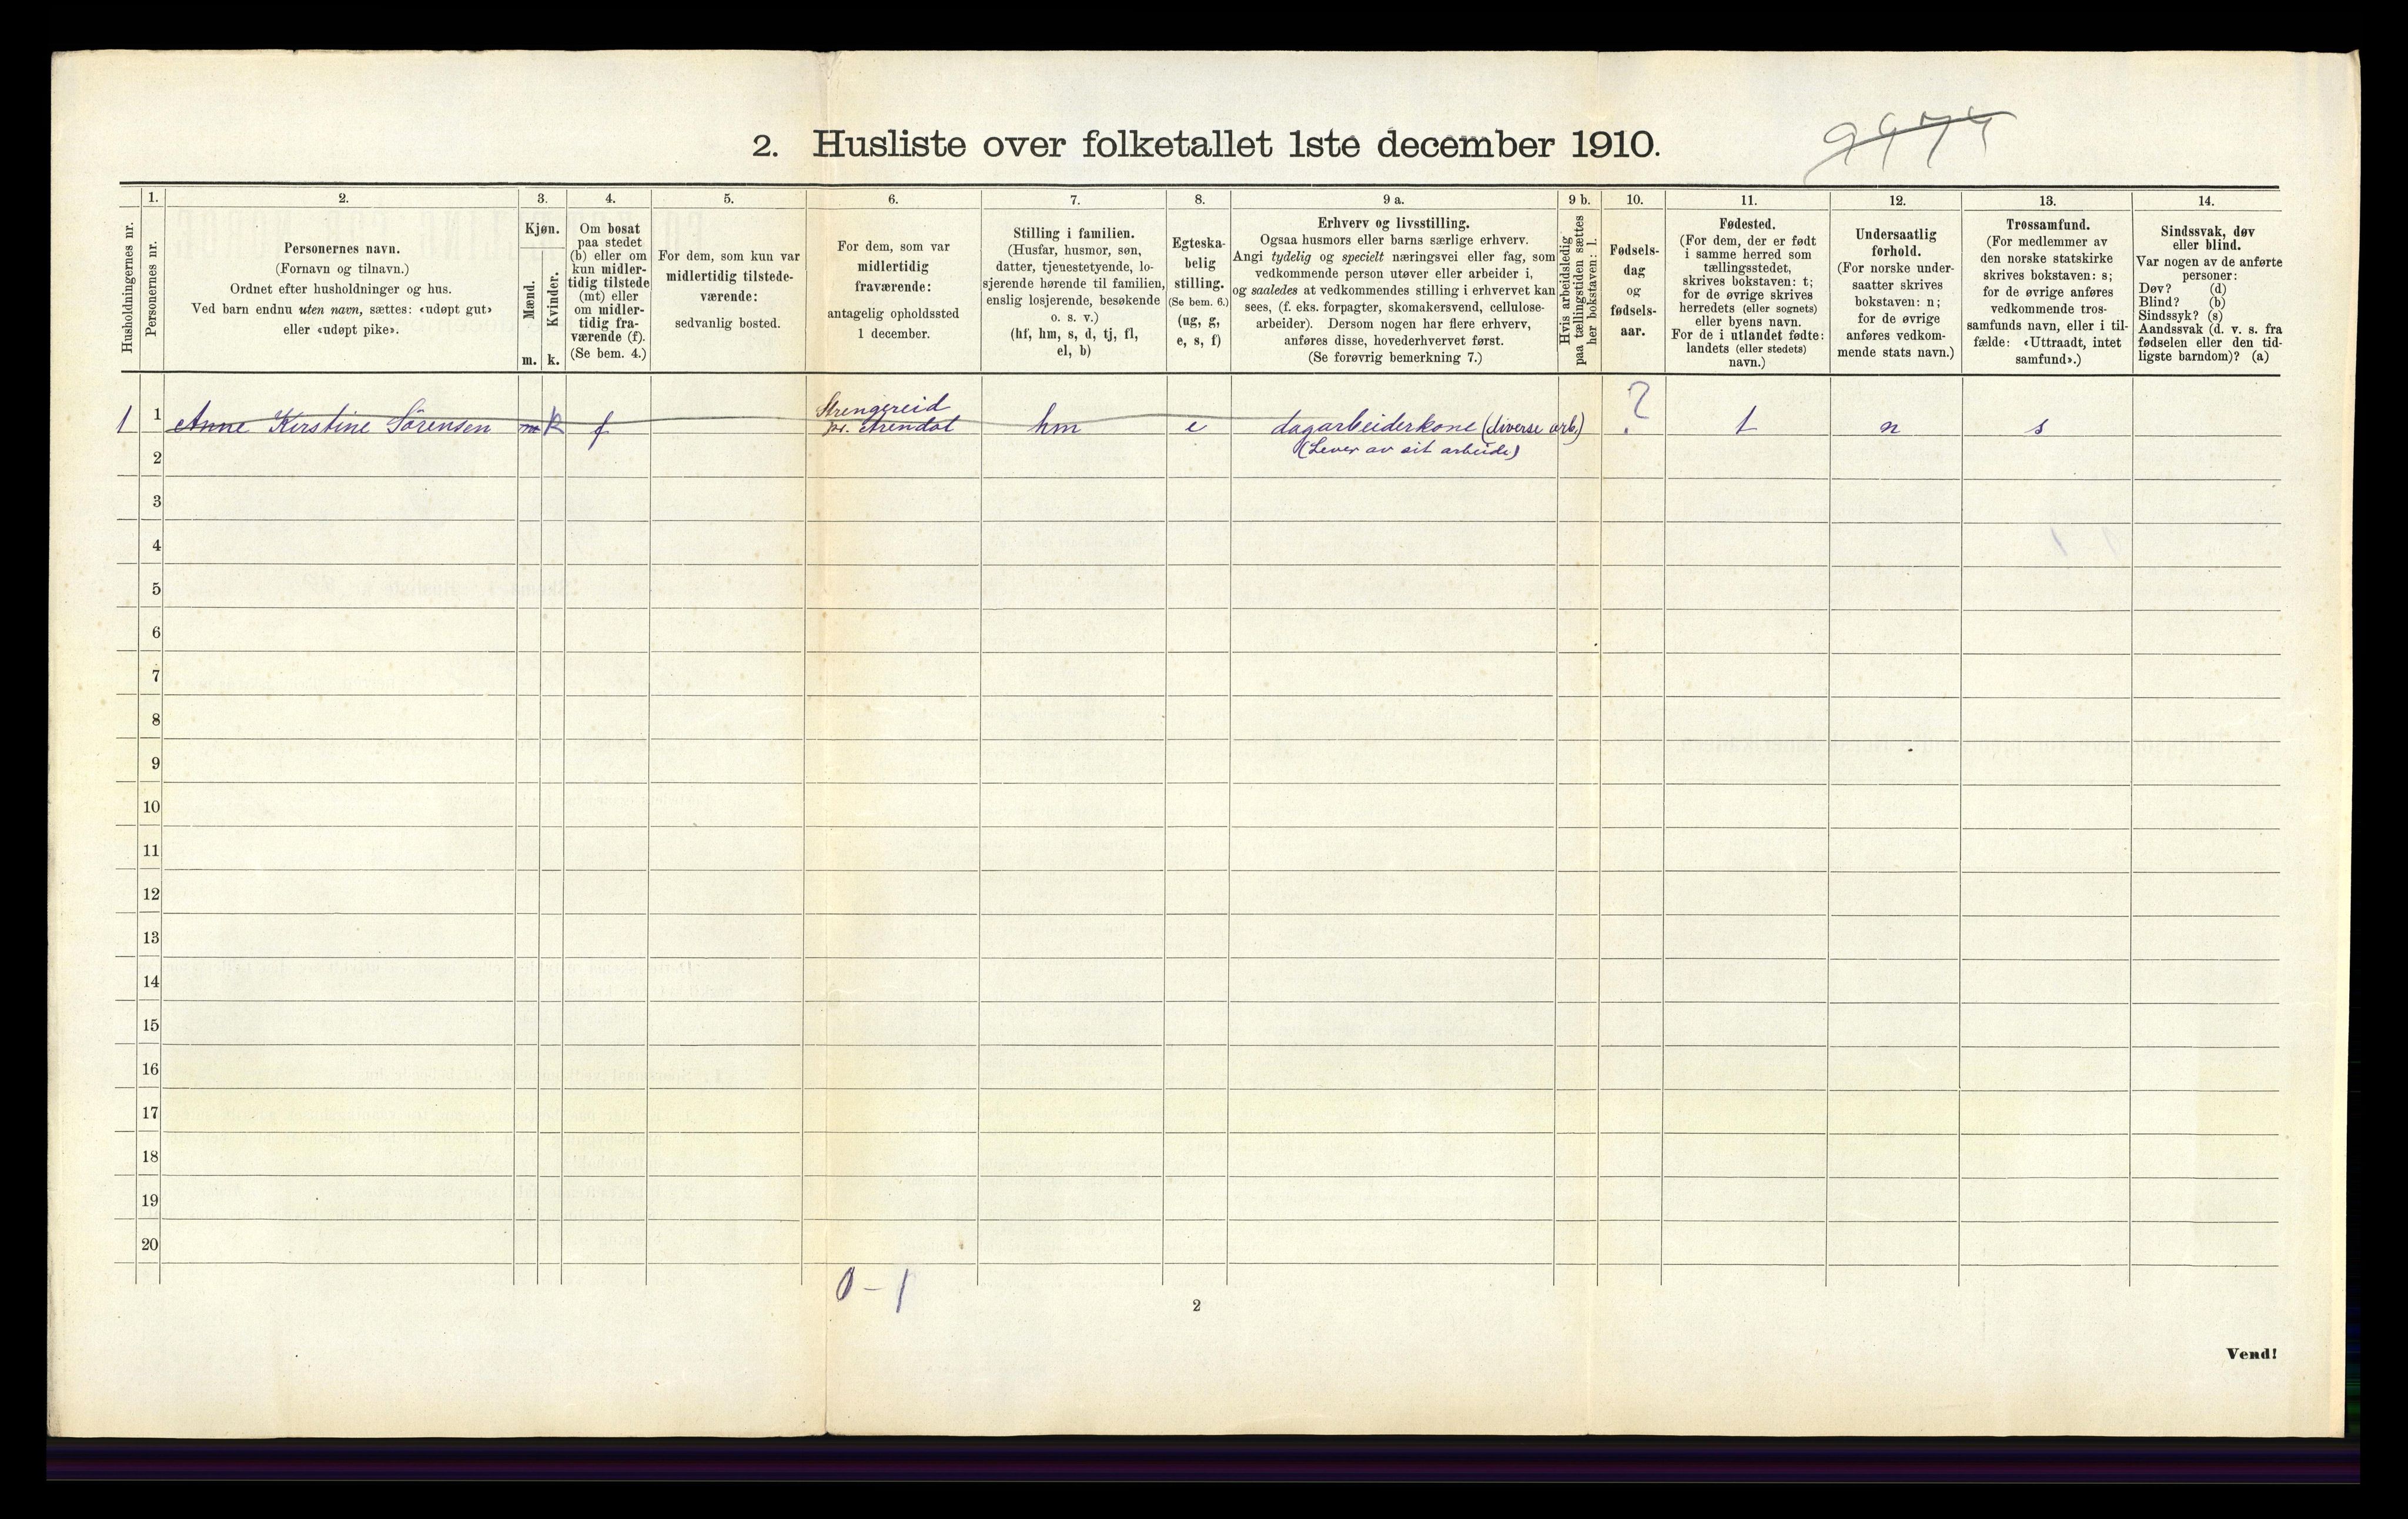 2. Husliste over folketallet 1ste december 1910.
Husholdningernes nr.
1.
Personernes nr.
2.
Personernes navn.
(Fornavn og tilnavn.)
Ordnet efter husholdninger og hus.
Ved barn endnu uten navn, sættes: «udøpt gut»
eller «udøpt pike».
3.
Kjøn.
Mænd.
Kvinder.
m. k.
4.
Om bosat
paa stedet
(b) eller om
kun midler-
tidig tilstede
(mt) eller
om midler-
tidig fra-
værende (f).
(Se bem. 4.)
5.
For dem, som kun var
midlertidig tilstede-
værende:
sedvanlig bosted.
6.
For dem, som var
midlertidig
fraværende:
antagelig opholdssted
1 december.
7.
Stilling i familien.
(Husfar, husmor, søn,
datter, tjenestetyende, lo-
sjerende hørende til familien,
enslig losjerende, besøkende
o. s. v.)
(hf, hm, s, d, tj, fl,
el, b)
8.
Egteska-
belig
stilling.
(Se bem. 6.)
(ug, g,
e, s, f)
9 a.
Erhverv og livsstilling.
Ogsaa husmors eller barns særlige erhverv.
Angi tydelig og specielt næringsvei eller fag, som
vedkommende person utøver eller arbeider i,
og saaledes at vedkommendes stilling i erhvervet kan
sees, (f. eks. forpagter, skomakersvend, cellulose-
arbeider). Dersom nogen har flere erhverv,
anføres disse, hovederhvervet først.
(Se forøvrig bemerkning 7.)
9 b.
Hvis arbeidsledig
paa tællingstiden sættes
her bokstaven: l.
10.
Fødsels-
dag
og
fødsels-
aar.
11.
Fødested.
(For dem, der er født
i samme herred som
tællingsstedet,
skrives bokstaven: t;
for de øvrige skrives
herredets (eller sognets)
eller byens navn.
For de i utlandet fødte:
landets (eller stedets)
navn.)
12.
Undersaatlig
forhold.
(For norske under-
saatter skrives
bokstaven: n;
for de øvrige
anføres vedkom-
mende stats navn.)
13.
Trossamfund.
(For medlemmer av
den norske statskirke
skrives bokstaven: s;
for de øvrige anføres
vedkommende tros-
samfunds navn, eller i til-
fælde: «Uttraadt, intet
samfund».)
14.
Sindssvak, døv
eller blind.
Var nogen av de anførte
personer:
Døv? (d)
Blind? (b)
Sindssyk? (s)
Aandssvak (d. v. s. fra
fødselen eller den tid-
ligste barndom)? (a)
Strengereid
1 1 Anne Kirstine Sörensen m k f pr. Arendal hm e dagarbeiderkone (diverse arb.) ? t n s
(Lever av sit arbeide)
2
3
4
5
6
7
8
9
10
11
12
13
14
15
16
17
18
19
20
0 - 1
2
Vend!